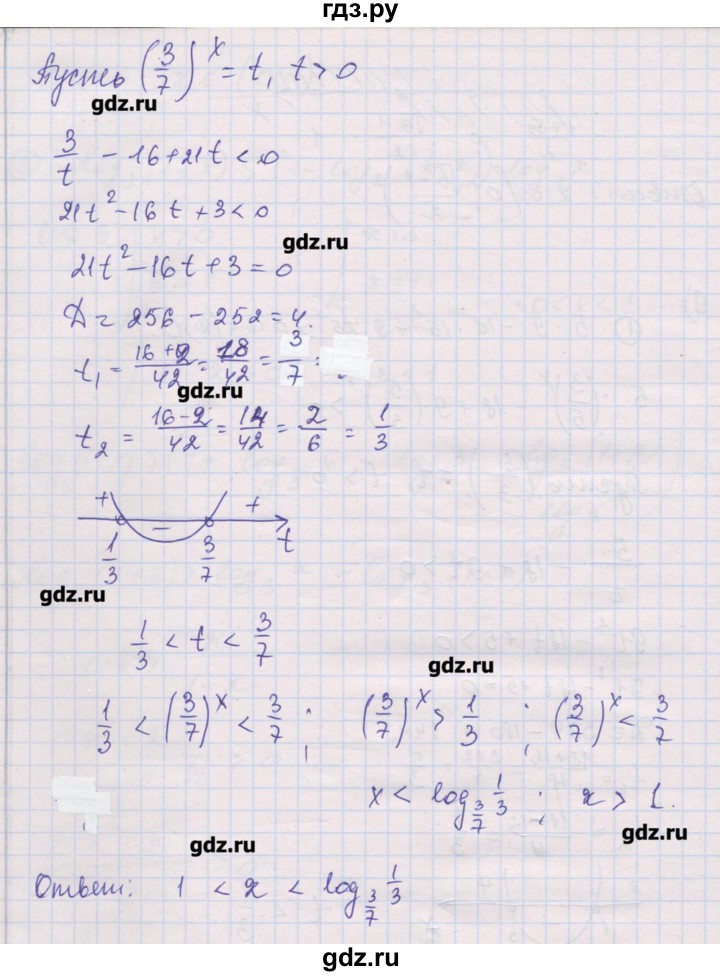 гдз.ру
Пусть (3/7)^x = t, t > 0
gdz.ru
3/t - 16 + 21t < 0
21t² - 16t + 3 < 0
gdz.ru
21t² - 16t + 3 = 0
D = 256 - 252 = 4.
t₁ = (16+2)/42 = 18/42 = 3/7 :
gdz.ru
t₂ = (16-2)/42 = 14/42 = 2/6 = 1/3
+ - +
1/3 3/7 t
gdz.ru
gdz.ru
1/3 < t < 3/7
gdz.ru
1/3 < (3/7)^x < 3/7 ; (3/7)^x > 1/3 ; (3/7)^x < 3/7
x < log_{3/7} 1/3 ; x > 1.
gdz.ru
gdz.ru
Ответ: 1 < x < log_{3/7} 1/3
gdz.ru